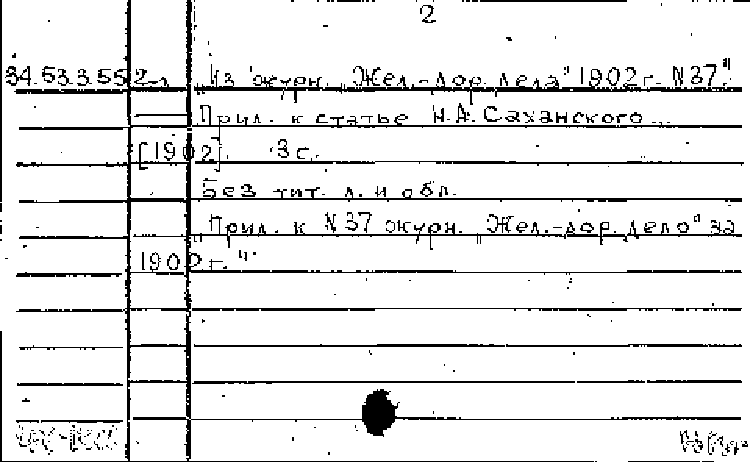 2
34.63.3.55.2-л „Из журн. „Жел.-дор. дела" 1902 г. N37".
Прил. к статье Н.А. Саханского...
[1902]. 3 с.
Без тит. л. и обл.
„Прил. к N37 журн. „Жел.-дор. дело" за
1902 г."